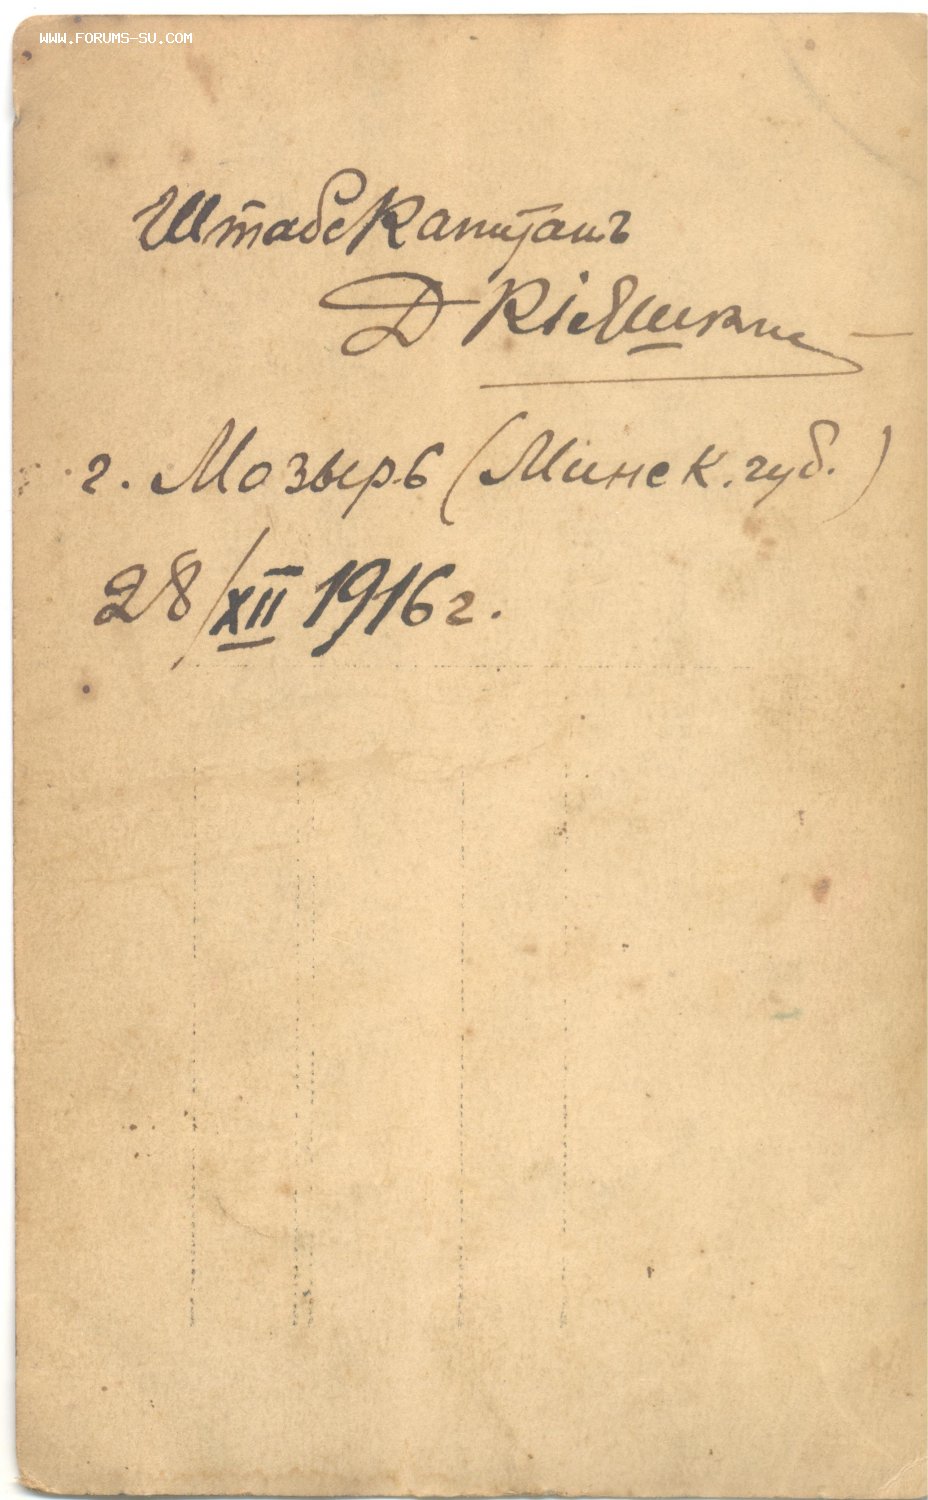 WWW.FORUMS-SU.COM
Штабскапитанъ
Д
г. Мозырь (Минск. губ.)
28/XII 1916 г.